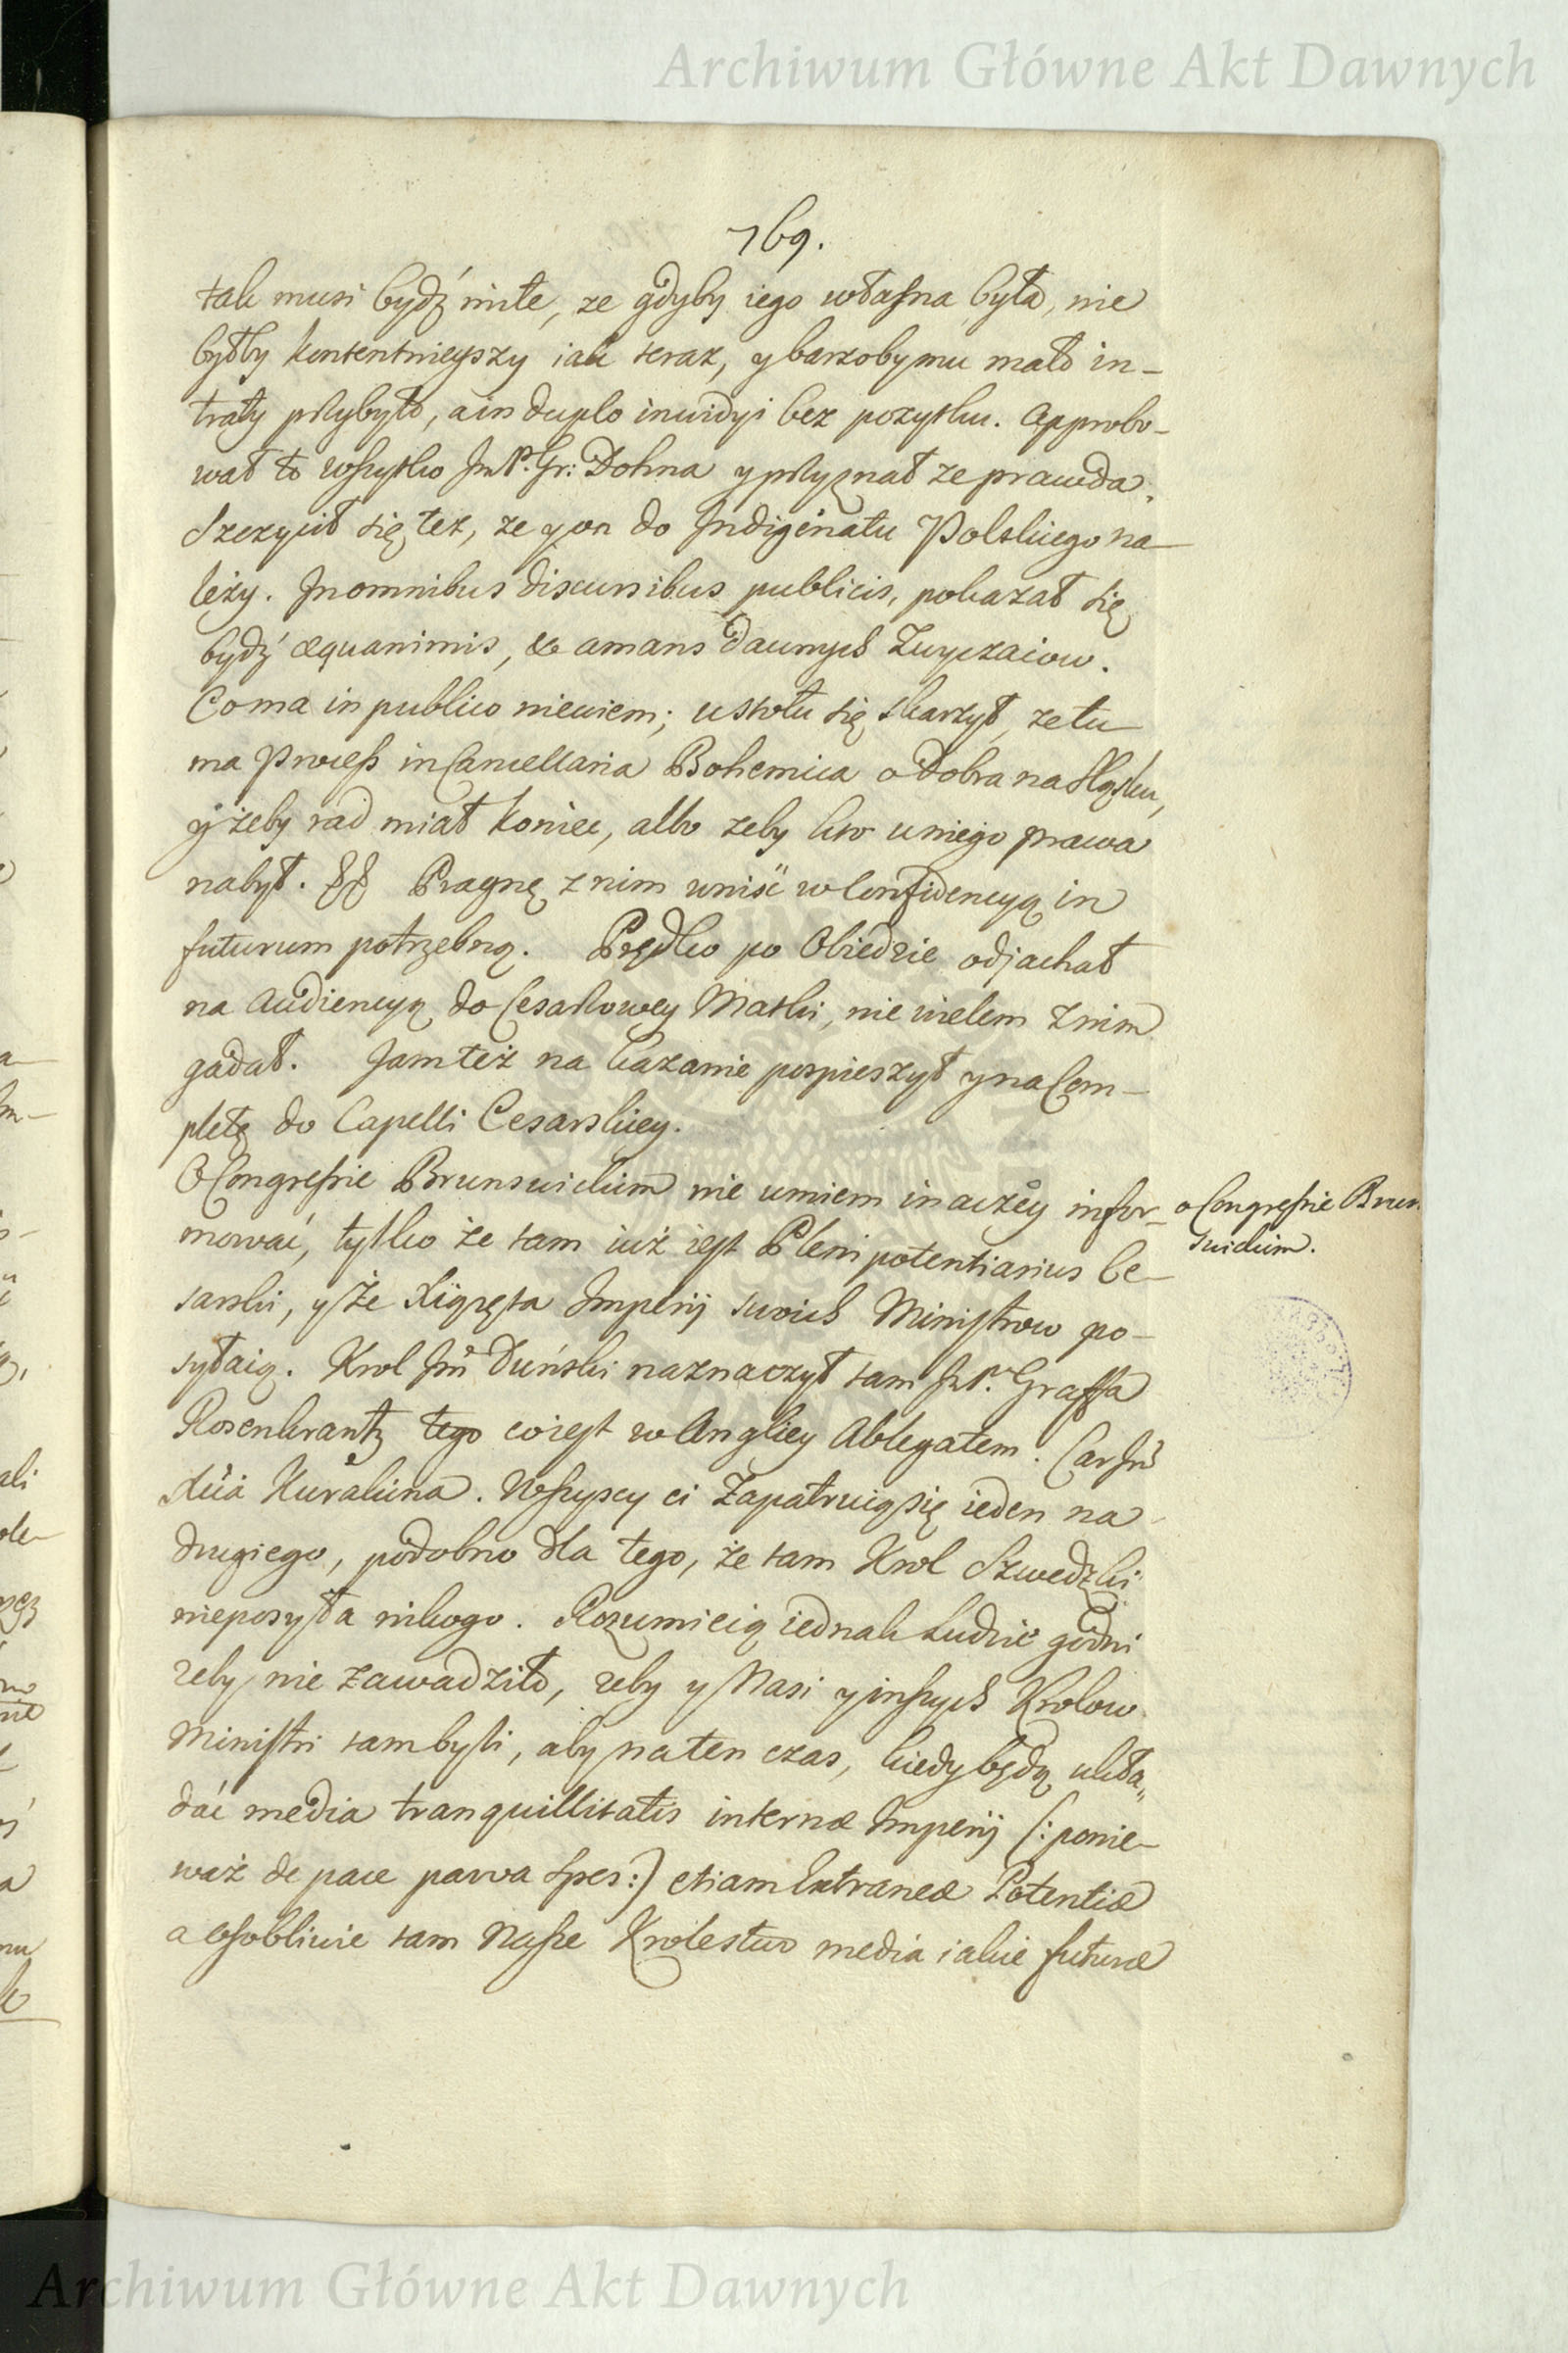 Archiwum Główne Akt Dawnych
769.
tak musi bydź miłe, ze gdyby iego własna była, nie
byłby kontentnieyszy iak teraz, y barzoby mu mało in-
traty przybyło, a in duplo inuidyi bez pozytku. Approbo-
wał to wszytko JmP. Gr: Dohna y przyznał ze prawda.
Szczycił się tez, ze y on do Indigenatu Polskiego na-
leży. In omnibus discursibus publicis, pokazał się
bydź æquanimis, & amans dawnych Zwyczaiow.
Co ma in publico niewiem; u stołu się skarzył, ze tu
ma Process in Cancellaria Bohemica o Dobra na Sląsku,
y żeby rad miał koniec, albo zeby kto u niego prawa
nabył. Pragnę z nim wniść w Confidencyą in
futurum potrzebną. Prędko po Obiedzie odjachał
na Audiencyą do Cesarzowey Matki, nie wielem z nim
gadał. Jam też na kazanie pospieszył y na Com-
pletę do Capelli Cesarskiey.
O Congressie Brunswickim nie umiem inaczey infor-
mować, tylko że tam iuż iest Plenipotentiarius Ce-
sarski, y że Xiążęta Imperij swoich Ministrow po-
syłaią. Krol Jm̃ Duński naznaczył tam JmP. Graffa
Rosenkrantz tego co iest w Angliey Ablegatem. Car Jm̃
Xcia Kurakina. Wszyscy ci Zapatruią się ieden na
drugiego, podobno dla tego, że tam Krol Szwedzki
nieposyła nikogo. Rozumieią iednak Ludzie godni
zeby nie zawadziło, zeby y Nasi y inszych Krolow
Ministri tam byli, aby na ten czas, kiedy będą ukła-
dać media tranquillitatis internæ Imperij (: ponie-
waż de pace parva spes:) etiam Extraneæ Potentiæ
a osobliwie tam Nasze Krolestwo media iakie futuræ
o Congressie Brun
swickim.
Archiwum Główne Akt Dawnych